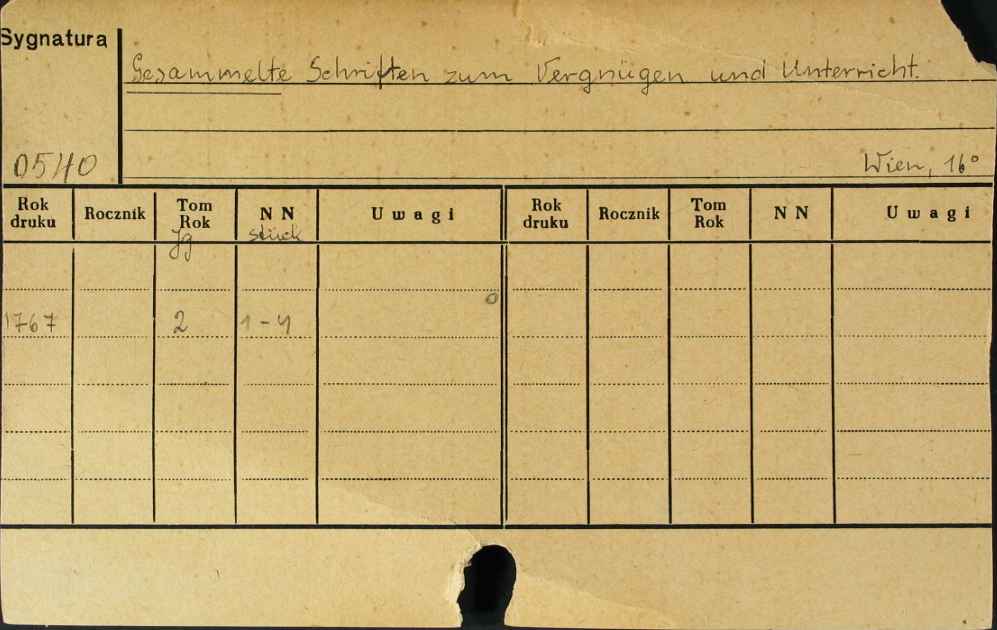 Sygnatura
Gesammelte Schriften zum Vergnügen und Unterricht.
0540
Wien, 16°
Rok druku Rocznik Tom Rok N N Uwagi Rok druku Rocznik Tom Rok N N Uwagi
Jg stück
1767 2 1-4